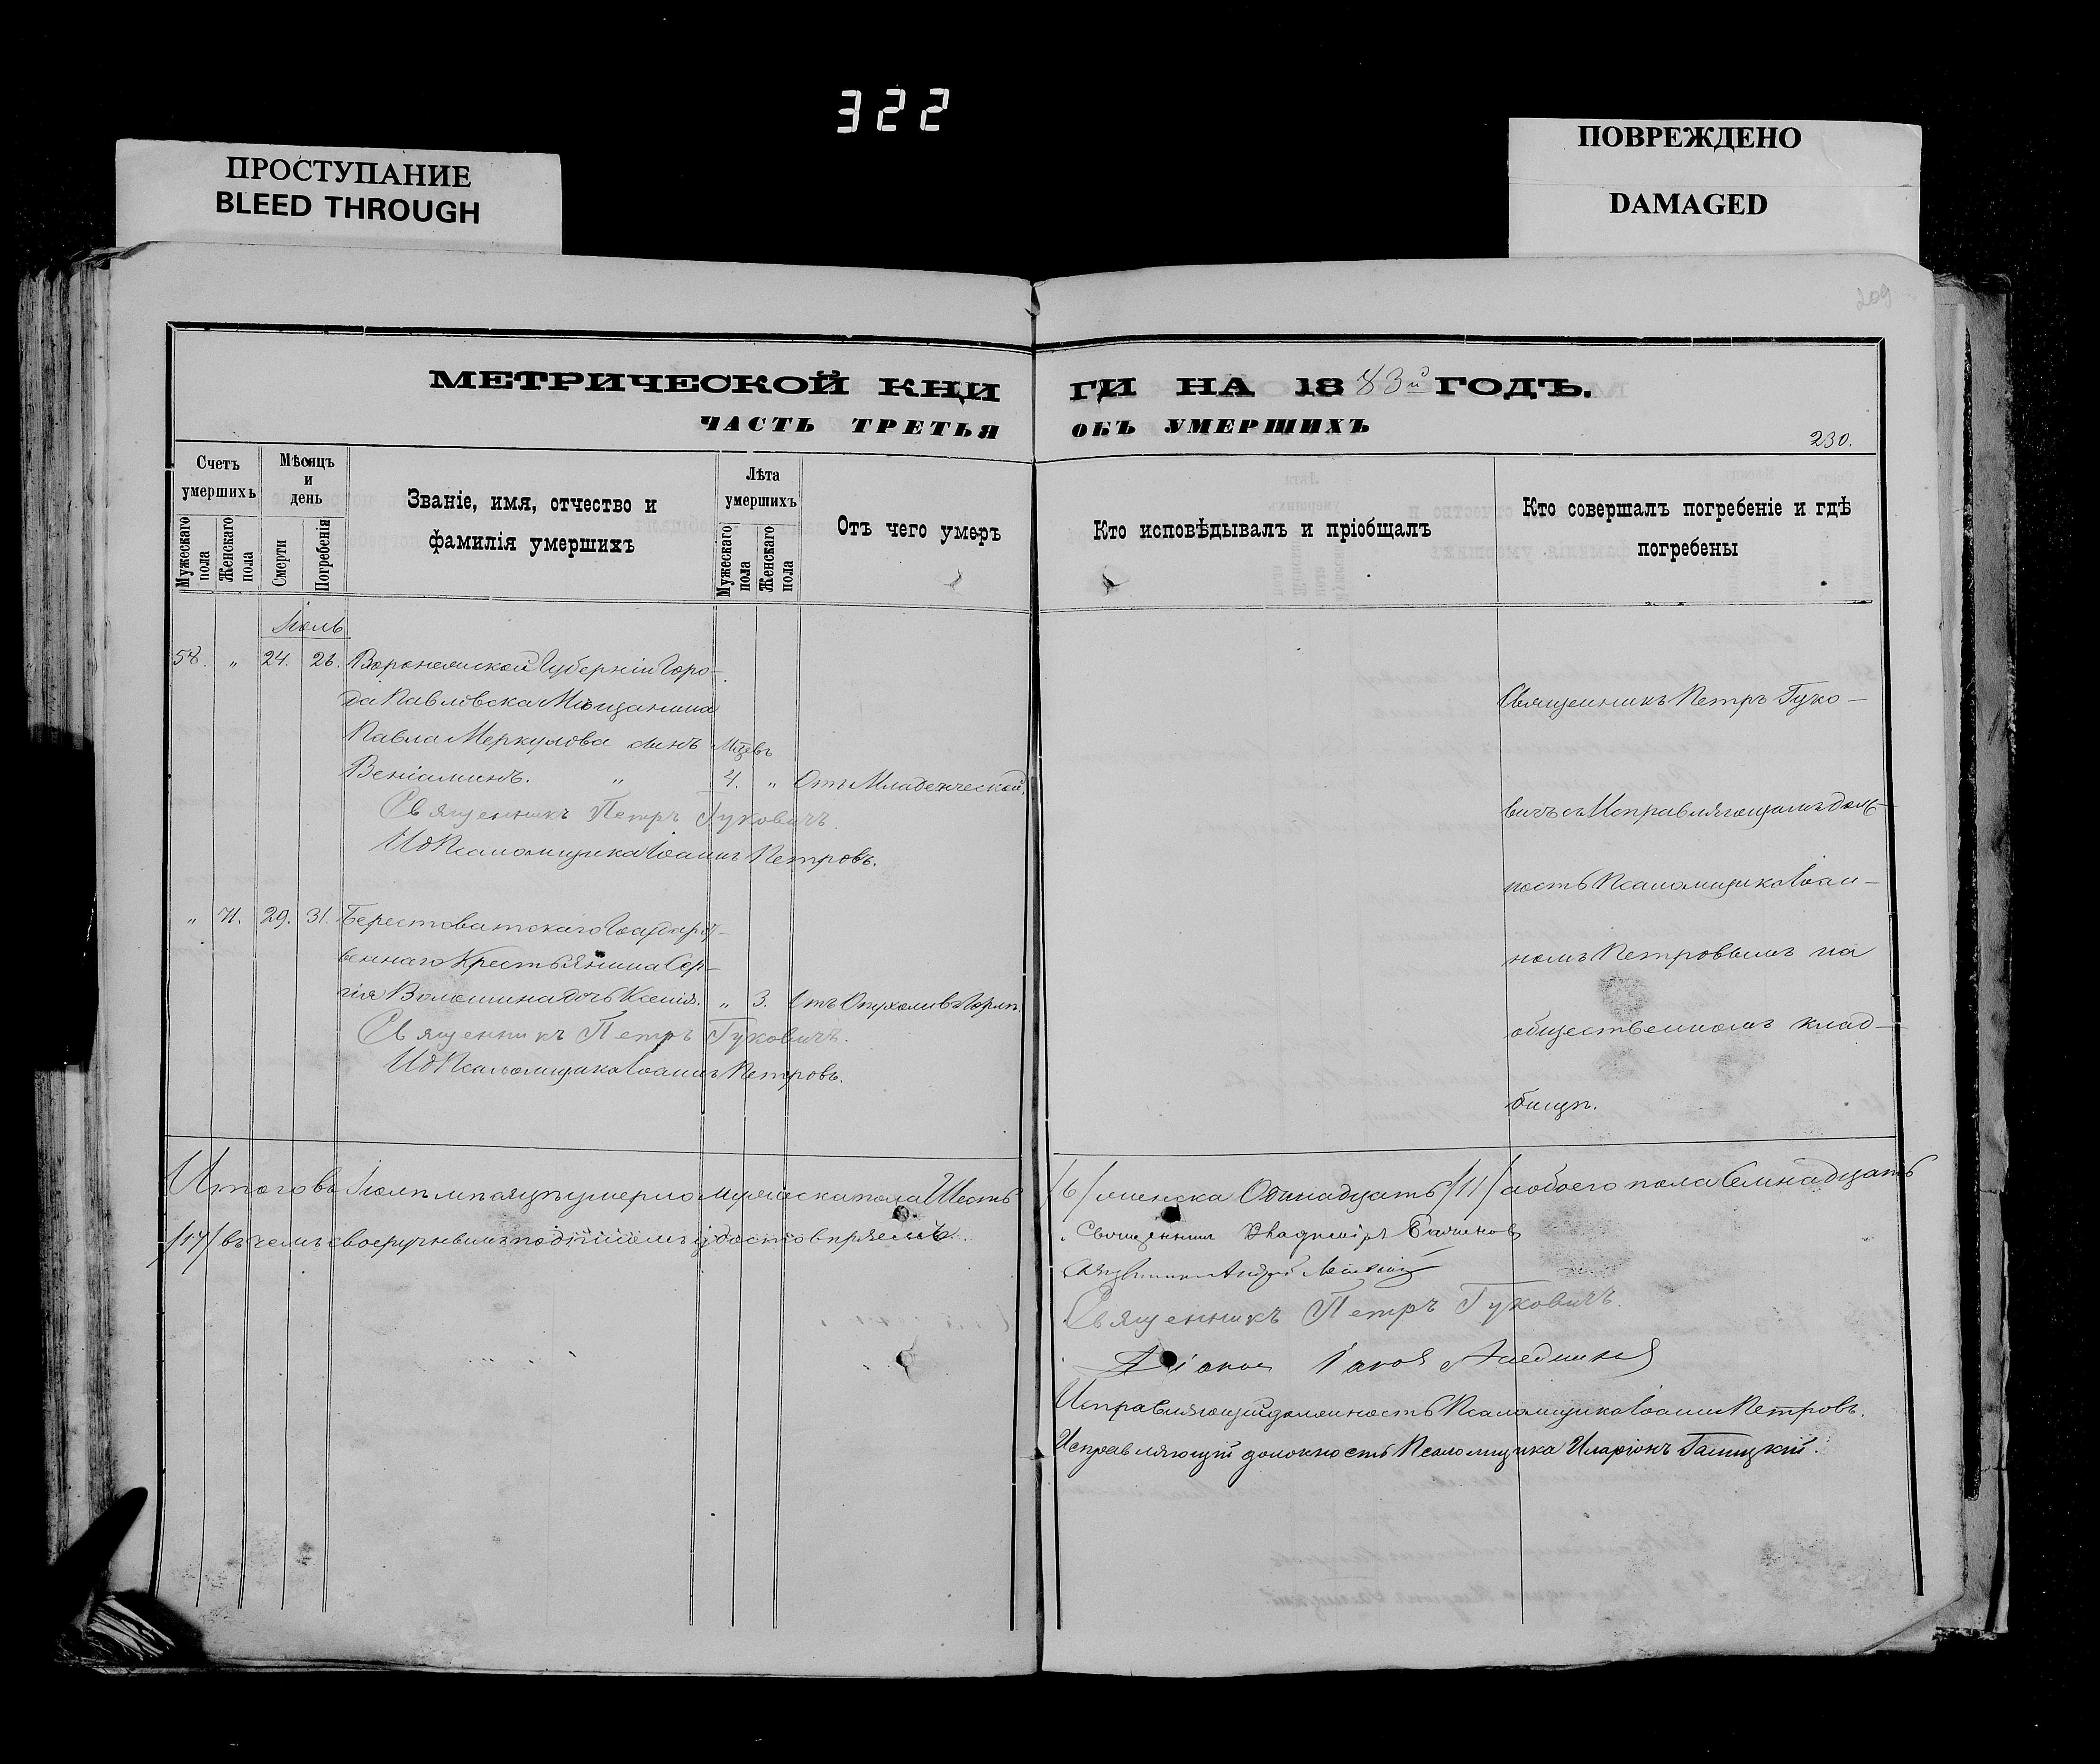 322
ПРОСТУПАНИЕ
BLEED THROUGH
ПОВРЕЖДЕНО
DAMAGED
209
МЕТРИЧЕСКОЙ КНИ
ГИ НА 1883й ГОДЪ.
ЧАСТЬ ТРЕТЬЯ
ОБЪ УМЕРШИХЪ
230.
Счетъ умершихъ
Мужескаго пола
Женскаго пола
Мѣсяцъ и день
Смерти
Погребенія
Званіе, имя, отчество и фамилія умершихъ
Лѣта умершихъ
Мужескаго пола
Женскаго пола
Отъ чего умеръ
Кто исповѣдывалъ и пріобщалъ
Кто совершалъ погребеніе и гдѣ погребены
Іюль
58. „ 24. 26. Воронежской Губерніи Горо-
да Павловска Мѣщанина
Павла Меркулова сынъ Мцевъ
Веніаминъ. „ 4. „ Отъ Младенческой.
Священникъ Петръ Гуковичъ.
И д Псаломщика Іоаннъ Петровъ.
„ 71. 29. 31. Берестоватскаго Государст-
веннаго Крестьянина Сер-
гія Волошина дочь Ксенія. „ 3. Отъ Опухоли в Горлѣ.
Священникъ Петръ Гуковичъ.
И д Псаломщика Іоаннъ Петровъ.
Священникъ Петръ Гуко-
вичъ съ Исправляющимъ долж-
ность Псаломщика Іоан-
номъ Петровымъ на
общественномъ клад-
бищѣ.
Итого въ Іюлѣ мѣсяцѣ умерло мужеска пола Шесть
/6/ женска Одинадцать /11/ а обоего пола Семнадцать
/17/ въ чемъ своеручнымъ подписомъ удостовѣряемъ.
Священникъ Владиміръ
Священникъ Андрей
Священникъ Петръ Гуковичъ.
Діаконъ Іаковъ
Исправляющій должность Псаломщика Іоаннъ Петровъ.
Исправляющій должность Псаломщика Иларіонъ Галицкій.